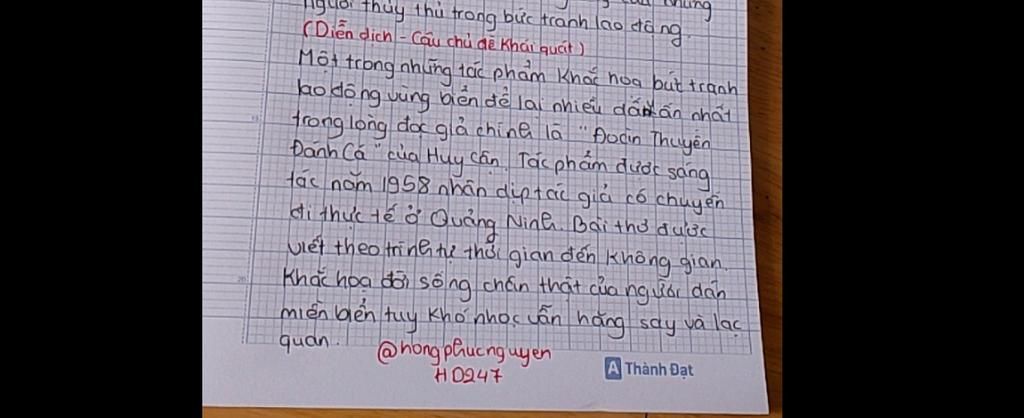 người thủy thủ trong bức tranh lao động.
(Diễn dịch - Câu chủ đề khái quát)
Một trong những tác phẩm khắc hoạ bút tranh
lao động vùng biển để lại nhiều dấu ấn nhất
trong lòng đọc giả chính là "Đoàn Thuyền
Đánh Cá" của Huy Cận. Tác phẩm được sáng
tác năm 1958 nhân dịp tác giả có chuyến
đi thực tế ở Quảng Ninh. Bài thơ được
viết theo trình tự thời gian đến không gian.
Khắc hoạ đời sống chân thật của người dân
miền biển tuy khó nhọc vẫn hăng say và lạc
quan.
@hongphucnguyen
HD247
A Thành Đạt